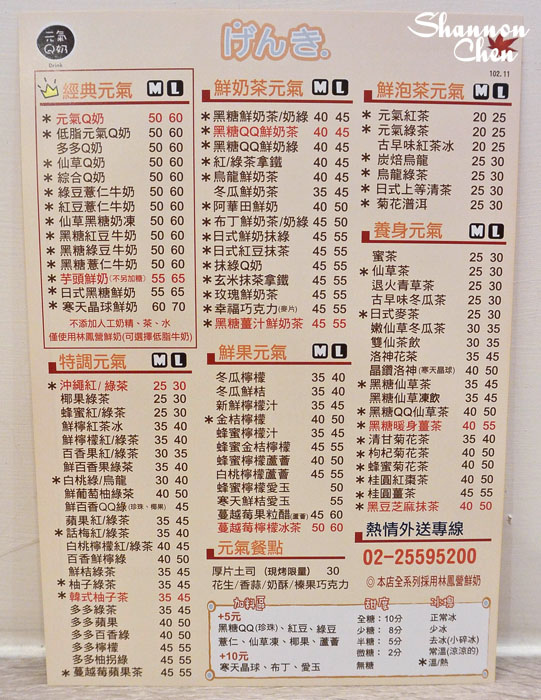 Shannon
Chen
元氣
Q奶
Drink
げんき。
102.11
經典元氣 M L
* 元氣Q奶 50 60
* 低脂元氣Q奶 50 60
多多Q奶 50 60
* 仙草Q奶 50 60
* 綜合Q奶 50 60
* 綠豆薏仁牛奶 50 60
* 紅豆薏仁牛奶 50 60
* 仙草黑糖奶凍 50 60
* 黑糖紅豆牛奶 50 60
* 黑糖綠豆牛奶 50 60
* 黑糖薏仁牛奶 50 60
* 芋頭鮮奶(不另加糖) 55 65
* 日式黑糖鮮奶 55 65
* 寒天晶球鮮奶 60 70
不添加人工奶精、茶、水
僅使用林鳳營鮮奶(可選擇低脂牛奶)
特調元氣 M L
* 沖繩紅/綠茶 25 30
椰果綠茶 25 30
蜂蜜紅/綠茶 25 30
鮮檸紅茶冰 35 40
鮮檸檬紅/綠茶 35 40
百香果紅/綠茶 30 35
鮮百香果綠茶 35 40
* 白桃綠/烏龍 30 40
鮮葡萄柚綠茶 40 50
鮮百香QQ綠(珍珠、椰果) 45
蘋果紅/綠茶 35 45
* 話梅紅/綠茶 35 45
白桃檸檬紅/綠茶 40 45
百香鮮檸綠 40 50
鮮桔綠茶 35 45
* 柚子綠茶 35 45
* 韓式柚子茶 35 45
多多綠茶 35 45
多多蘋果 40 50
多多百香綠 40 50
多多檸檬 40 50
多多柚拐綠 45 55
* 蔓越莓蘋果茶 45 55
鮮奶茶元氣 M L
* 黑糖鮮奶茶/奶綠 40 45
* 黑糖QQ鮮奶茶 40 45
* 黑糖QQ鮮奶綠 40 45
* 紅/綠茶拿鐵 40 45
* 烏龍鮮奶茶 40 45
冬瓜鮮奶茶 35 45
* 阿華田鮮奶 40 50
* 布丁鮮奶茶/奶綠 45 50
* 日式鮮奶抹綠 45 55
* 日式紅豆抹茶 45 55
* 抹綠Q奶 45 55
* 玄米抹茶拿鐵 45 55
* 玫瑰鮮奶茶 45 55
* 幸福巧克力(麥片) 45 55
* 黑糖薑汁鮮奶茶 45 55
鮮果元氣 M L
冬瓜檸檬 35 40
冬瓜鮮桔 35 40
新鮮檸檬汁 35 40
* 金桔檸檬 40 50
蜂蜜檸檬汁 35 40
蜂蜜金桔檸檬 45 55
蜂蜜檸檬蘆薈 40 50
白桃檸檬蘆薈 45 55
蜂蜜檸檬愛玉 50
寒天鮮桔愛玉 55
蔓越莓果粒醋(蘆薈) 45 60
蔓越莓檸檬冰茶 50 60
元氣餐點
厚片土司 (現烤限量) 30
花生/香蒜/奶酥/榛果巧克力
鮮泡茶元氣 M L
* 元氣紅茶 20 25
* 元氣綠茶 20 25
古早味紅茶冰 20 25
* 炭焙烏龍 25 30
* 烏龍綠茶 25 30
* 日式上等清茶 25 30
* 菊花潽洱 25 30
養身元氣 M L
蜜茶 25 30
* 仙草茶 25 30
退火青草茶 25 30
古早味冬瓜茶 25 30
* 日式麥茶 25 30
嫩仙草冬瓜茶 30 35
雙仙茶飲 30 35
洛神花茶 35 45
晶鑽洛神(寒天晶球) 40 50
* 黑糖仙草茶 35 45
黑糖仙草凍飲 35 45
* 黑糖QQ仙草茶 40 50
* 黑糖暖身薑茶 40 55
* 清甘菊花茶 35 45
* 枸杞菊花茶 40 50
* 蜂蜜菊花茶 40 50
* 桂圓紅棗茶 40 50
* 桂圓薑茶 45 55
* 黑豆芝麻抹茶 40 50
熱情外送專線
02-25595200
◎本店全系列採用林鳳營鮮奶
加料區
+5元
黑糖QQ(珍珠)、紅豆、綠豆
薏仁、仙草凍、椰果、蘆薈
+10元
寒天晶球、布丁、愛玉
甜度
全糖：10分
少糖：8分
半糖：5分
微糖：2分
無糖
冰塊
正常冰
少冰
去冰(小碎冰)
常溫(涼涼的)
* 溫/熱